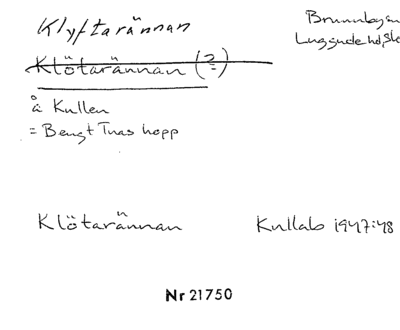 Klyftarännan
Brunnby sn
Luggude hd, Sk
Klötarännan (?)
å Kullen
= Bengt Tuas hopp
Klötarännan
Kullab 1947:48
Nr 21750